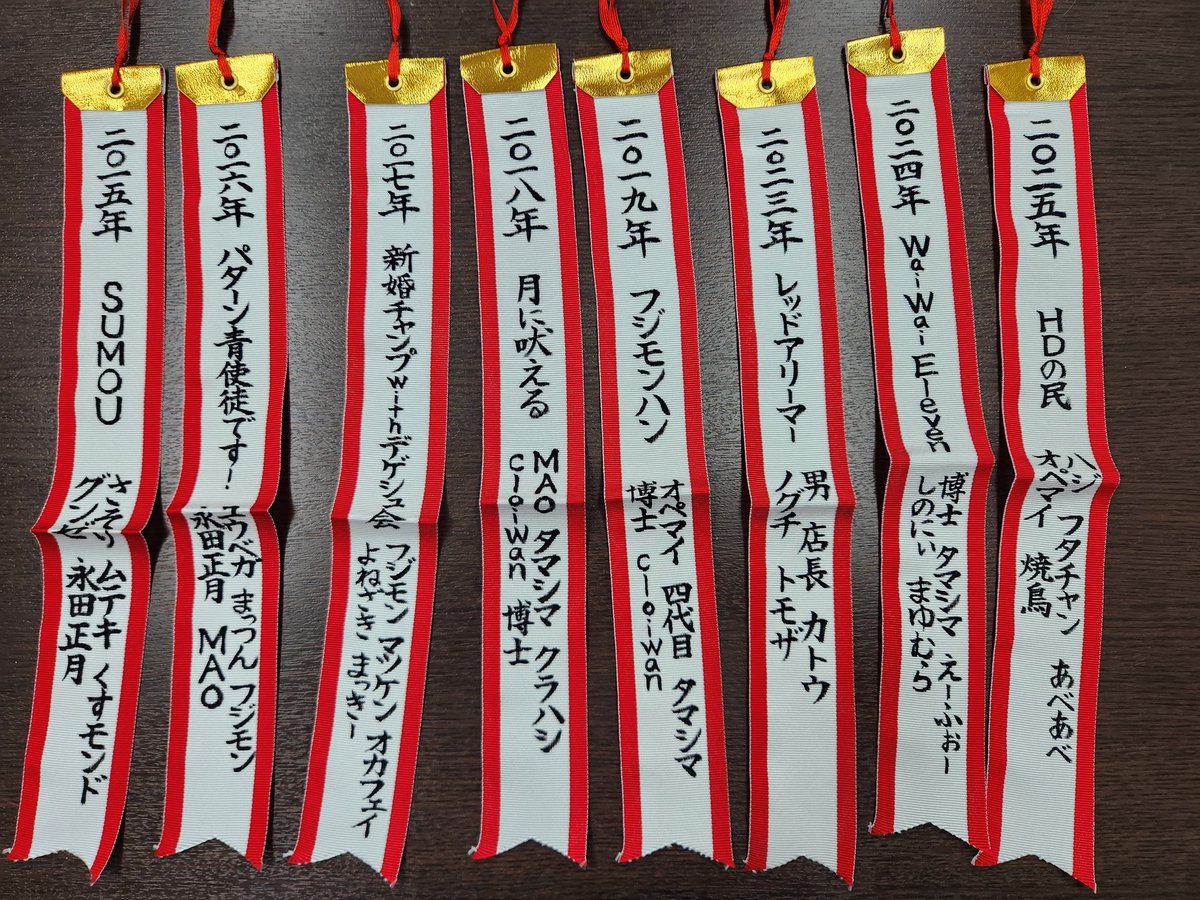 二〇一五年 SUMOU
さそり ムテキ くすモンド
グンゼ 永田正月
二〇一六年 パターン青使徒です！
エウベガ まっつん フジモン
永田正月 MAO
二〇一七年 新婚チャンプwithデゲシュ会
フジモン マッケン オカフェイ
よねざき まっきー
二〇一八年 月に吠える
MAO タマシマ クラハシ
cloiwan 博士
二〇一九年 フジモンハン
オペマイ 四代目 タマシマ
博士 cloiwan
二〇二三年 レッドアリーマー
男 店長 カトウ
ノグチ トモザ
二〇二四年 Wai-Wai-Eleven
博士 タマシマ えーふぉー
しのにぃ まゆむら
二〇二五年 HDの民
ハジ フタチャン あべあべ
オペマイ 焼鳥